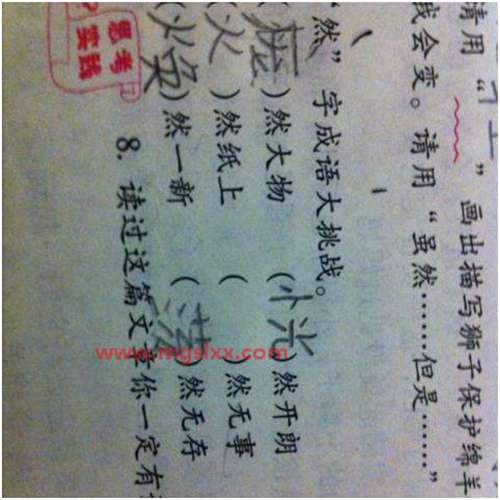 请用“ ”画出描写狮子保护绵羊
我会变。请用“虽然……但是……”
“然”字成语大挑战。
( )然大物 (恍)然开朗
(火)然纸上 ( )然无事
(焕)然一新 (荡)然无存
8. 读过这篇文章你一定有
思考
实践
www.mgslxx.com